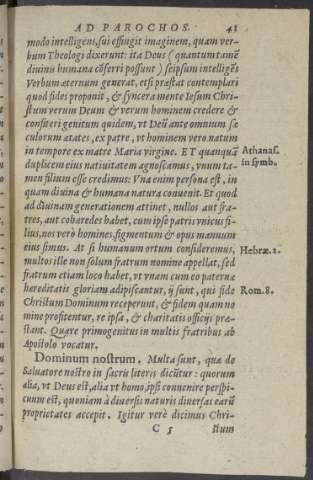 AD PAROCHOS. 41
modo intelligens, sui effingit imaginem, quam ver-
bum Theologi dixerunt: ita Deus (quantum tamẽ
diuinis humana cõferri possunt) seipsum intelligẽs
Verbum æternum generat, etsi præstat contemplari
quod fides proponit, & syncera mente Iesum Chri-
stum verum Deum & verum hominem credere &
confiteri genitum quidem, vt Deũ antẹ omnium sæ
culorum ætates, ex patre, vt hominem vero natum
in tempore ex matre Maria virgine. ET quanquã
Athanas.
duplicem eius natiuitatem agnoscamus, vnum ta-
in symb.
men filium esse credimus: Vna enim persona est, in
quam diuina & humana natura conuenit. Et quod
ad diuinam generationem attinet, nullos aut fra-
tres, aut cohæredes habet, cum ipse patris vnicus fi-
lius, nos verò homines, figmentum & opus manuum
eius simus. At si humanum ortum consideremus,
Hebræ.2.
multos ille non solùm fratrum nomine appellat, sed
fratrum etiam loco habet, vt vnam cum eo paternæ
hereditatis gloriam adipiscantur, ij sunt, qui fide
Rom.8.
Christum Dominum receperunt, & fidem quam no
mine profitentur, re ipsa, & charitatis officijs præ-
stant. Quare primogenitus in multis fratribus ab
Apostolo vocatur.
Dominum nostrum. Multa sunt, quæ de
Saluatore nostro in sacris literis dicũtur: quorum
alia, vt Deus est, alia vt homo, ipsi conuenire perspi-
cuum est, quoniã à diuersis naturis diuersas earũ
proprietates accepit. Igitur verè dicimus Chri-
C 5 stum